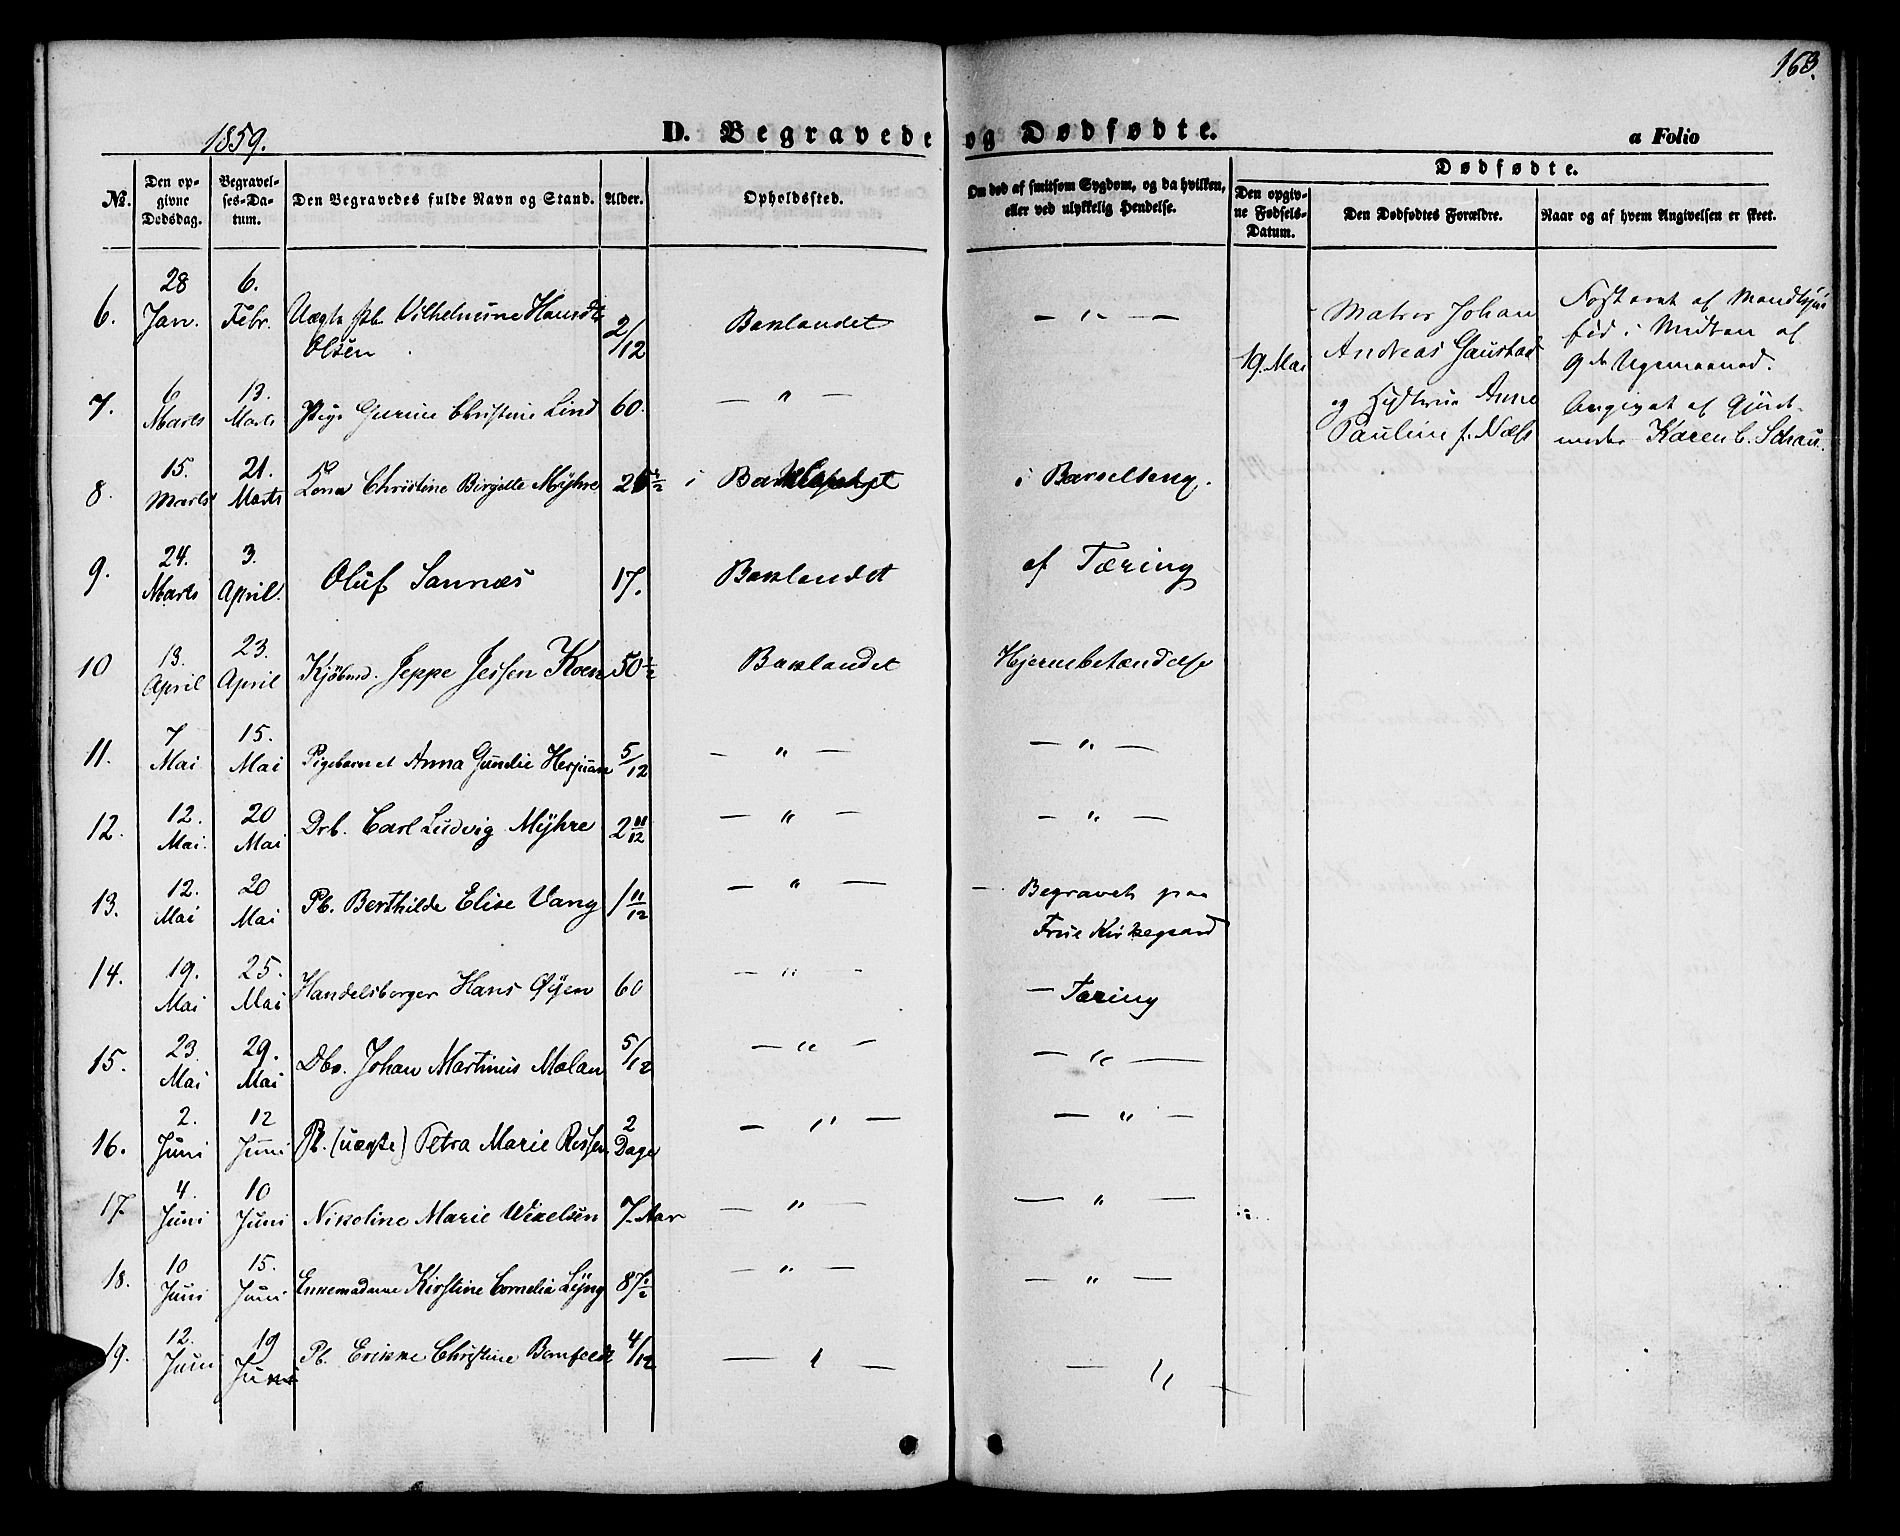 163.
1859.
D. Begravede og Dødfødte.
a Folio
No.
Den opgivne Dødsdag.
Begravelses-Datum.
Den Begravedes fulde Navn og Stand.
Alder.
Opholdssted.
Om død af smitsom Sygdom, og da hvilken, eller ved ulykkelig Hendelse.
Dødfødte.
Den opgivne Fødsels-Datum.
Den Dødfødtes Forældre.
Naar og af hvem Angivelsen er skeet.
6. 28 Jan. 6. Febr. Uægte Vilhelmine Olsen 2/12 Baklandet — " —
19. Mai
Matros Johan
Andreas Gaustad
og Hustrue Anne
Pauline f. Næss
Fosteret af Mandkjøn
fød i Midten af
9de Ugemaaned.
Angivet af Gjord-
moder Karen C. Schau
7. 6 Marts 13. Marts Pige Gurine Christine Lind 60. — " —
8. 15. Marts 21. Marts Lena Christine Birgitte Myhre i i Barselseng.
9. 24. Marts 3. April. Oluf Sannæs 17. Baklandet af Tæring
10 13. April 23. April Kjøbmd. Jeppe Jessen Koen 50 1/2 Baklandet Hjernebetændelse
11. 7 Mai 15. Mai Pigebarnet Anna 5/12 — " — — " —
12. 12. Mai. 20 Mai Drb. Carl Ludvig Myhre 2 11/12 — " — — " —
13. 12. Mai 20 Mai Pb. Berthilde Elise Vang 1 11/12 — " — — Begravet paa
Frue Kirkegaard
14. 19. Mai 25. Mai Handelsborger Hans Øyen 60 — " — — Tæring
15. 23. Mai 29. Mai Dbr. Johan Martinus Mælan 5/12 — " — — " —
16. 2. Juni 12 Juni Pb. (uægte) Petra Marie Rissen 2 Dage — " — — " —
17. 4. Juni 10 Juni Nikoline Marie Wexelsen 7. Aar — " — — " —
18. 10 Juni 15. Juni Enkemadame Kirstine Cornelia Lyng 87 1/2 — " — — " —
19. 12. Juni 19 Juni Pb. Erikke Christine 4/12 — " — — " —